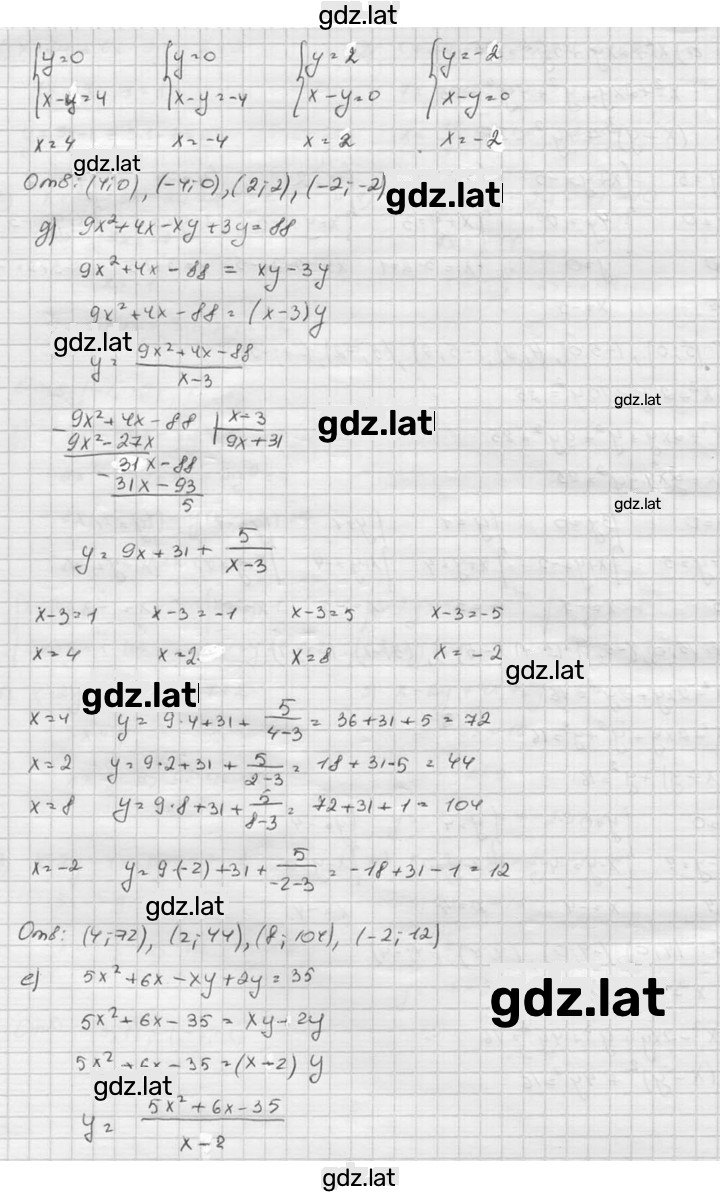 gdz.lat
{y=0 {y=0 {y=2 {y=-2
{x-y=4 {x-y=-4 {x-y=0 {x-y=0
x=4 x=-4 x=2 x=-2
gdz.lat
Отв: (4;0), (-4;0), (2;2), (-2;-2)
gdz.lat
д) 9x²+4x-xy+3y=88
9x²+4x-88 = xy-3y
9x²+4x-88=(x-3)y
gdz.lat
y= (9x²+4x-88)/(x-3)
gdz.lat
- 9x²+4x-88 | x-3
9x²-27x 9x+31
gdz.lat
31x-88
- 31x-93
5
gdz.lat
y=9x+31+ 5/(x-3)
x-3=1 x-3=-1 x-3=5 x-3=-5
x=4 x=2 x=8 x=-2
gdz.lat
gdz.lat
x=4 y= 9·4+31+ 5/(4-3) = 36+31+5=72
x=2 y=9·2+31+ 5/(2-3) = 18+31-5=44
x=8 y=9·8+31+ 5/(8-3) = 72+31+1=104
x=-2 y=9·(-2)+31+ 5/(-2-3) = -18+31-1=12
gdz.lat
Отв: (4;72), (2;44), (8;104), (-2;12)
е) 5x²+6x-xy+2y=35
gdz.lat
5x²+6x-35=xy-2y
5x²+6x-35=(x-2)y
gdz.lat
y= (5x²+6x-35)/(x-2)
gdz.lat